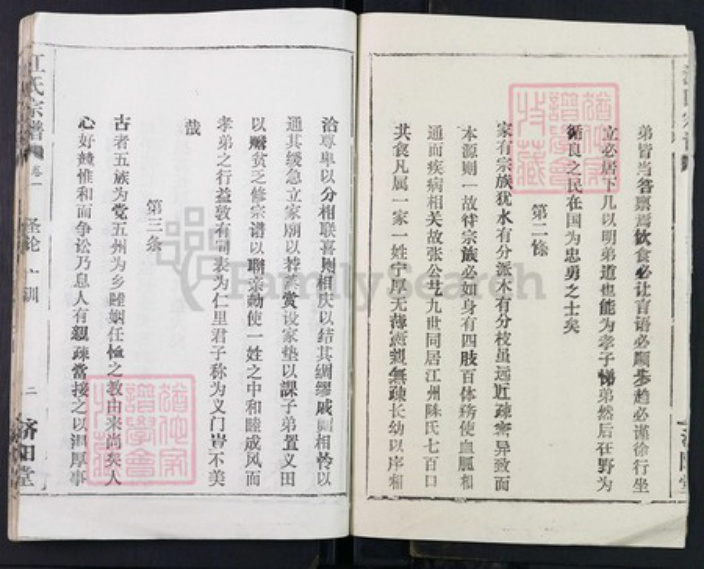 弟皆当各禀焉饮食必让言语必顺步趋必谨徐行坐
立必居下凡以明弟道也能为孝子悌弟然后在野为
循良之民在国为忠勇之士矣
第二條
家有宗族犹水有分派木有分枝虽远近疎密异致而
本源则一故待宗族必如身有四肢百体务使血脈相
通而疾病相关故张公艺九世同居江州陈氏七百口
共食凡属一家一姓宁厚无薄宁親無疎长幼以序相
洽尊卑以分相联喜则相庆以结其绸缪戚则相怜以
通其缓急立家庙以荐蒸赏设家塾以課子弟置义田
以赡贫乏修宗谱以联亲勐使一姓之中和睦成风而
孝弟之行益敦有司表为仁里君子称为义门岂不美
哉
第三条
古者五族为党五州为乡睦姻任恤之教由来尚矣人
心好兢惟和而争讼乃息人有親疎當接之以溫厚事
江氏宗譜
卷一
圣论广训
二
济阳堂
FamilySearch
譜學會
收藏